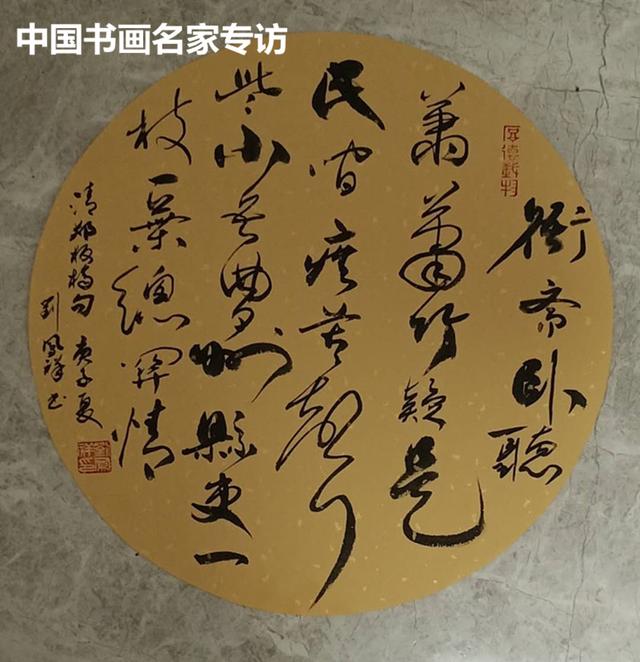 中国书画名家专访
厚德載物
衙斋卧聽
萧蕭竹疑是
民间疾苦声
些小吾曹州縣吏一
枝一葉總関情
清郑板橋句 庚子夏
刘凤祥书